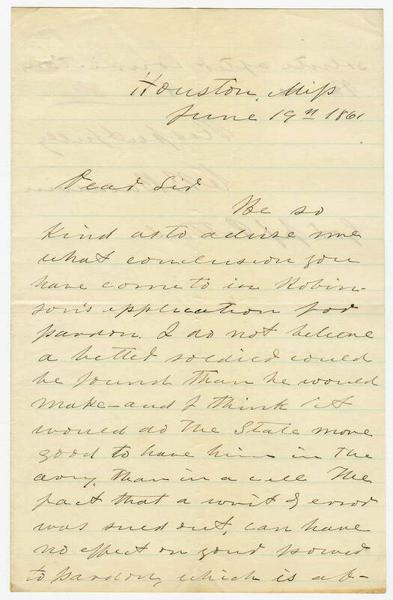 Houston, Miss
June 19th 1861
Dear Sir
Be so
kind as to advise me
what conclusion you
have come to in Robin-
son's application for
pardon. I do not believe
a better soldier could
be found than he would
make - and I think it
would do the State more
good to have him in the
army, than in a cell The
fact that a writ of error
was sued out, can have
no effect on your power
to pardon, which is ab-